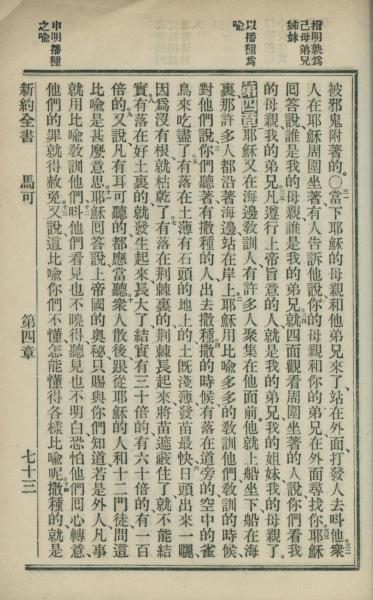 指明孰爲
己母弟兄
姊妹
以播種爲
喻
申明播種
之喻
被邪鬼附著的○當下耶穌的母親和他弟兄來了、站在外面、打發人去呌他衆
人在耶穌周圍坐著有人告訴他說你的母親和你的弟兄在外面尋找你耶穌
回答說誰是我的母親誰是我的弟兄就四面觀看周圍坐著的人說你們看我
的母親我的弟兄凡遵行上帝旨意的人就是我的弟兄我的姐妹我的母親了。
第四章耶穌又在海邊敎訓人有許多人聚集在他面前他就上船坐下、船在海
裏那許多人都沿著海邊站在岸上耶穌用比喻多多的敎訓他們敎訓的時候、
對他們說你們聽著有撒種的人出去撒種撒的時候有落在道旁的空中的雀
鳥來吃盡了有落在土薄有石頭的地上的土旣淺薄發苗最快日頭出來一曬、
因爲沒有根就枯乾了有落在荆棘裏的荆棘長起來將苗遮蔽住了就不能結
實有落在好土裏的就發生起來長大了結實有三十倍的有六十倍的有一百
倍的又說凡有耳可聽的都應當聽衆人散後跟從耶穌的人和十二門徒問這
比喻是甚麼意思耶穌回答說上帝國的奧秘只賜與你們知道若是外人凡事
就用比喻敎訓他們呌他們看見也不曉得聽見也不明白恐怕他們囘心轉意
他們的罪就得赦免又說這比喻你們不懂怎能懂得各樣比喻呢撒種的就是
新約全書 馬可 第四章 七十三